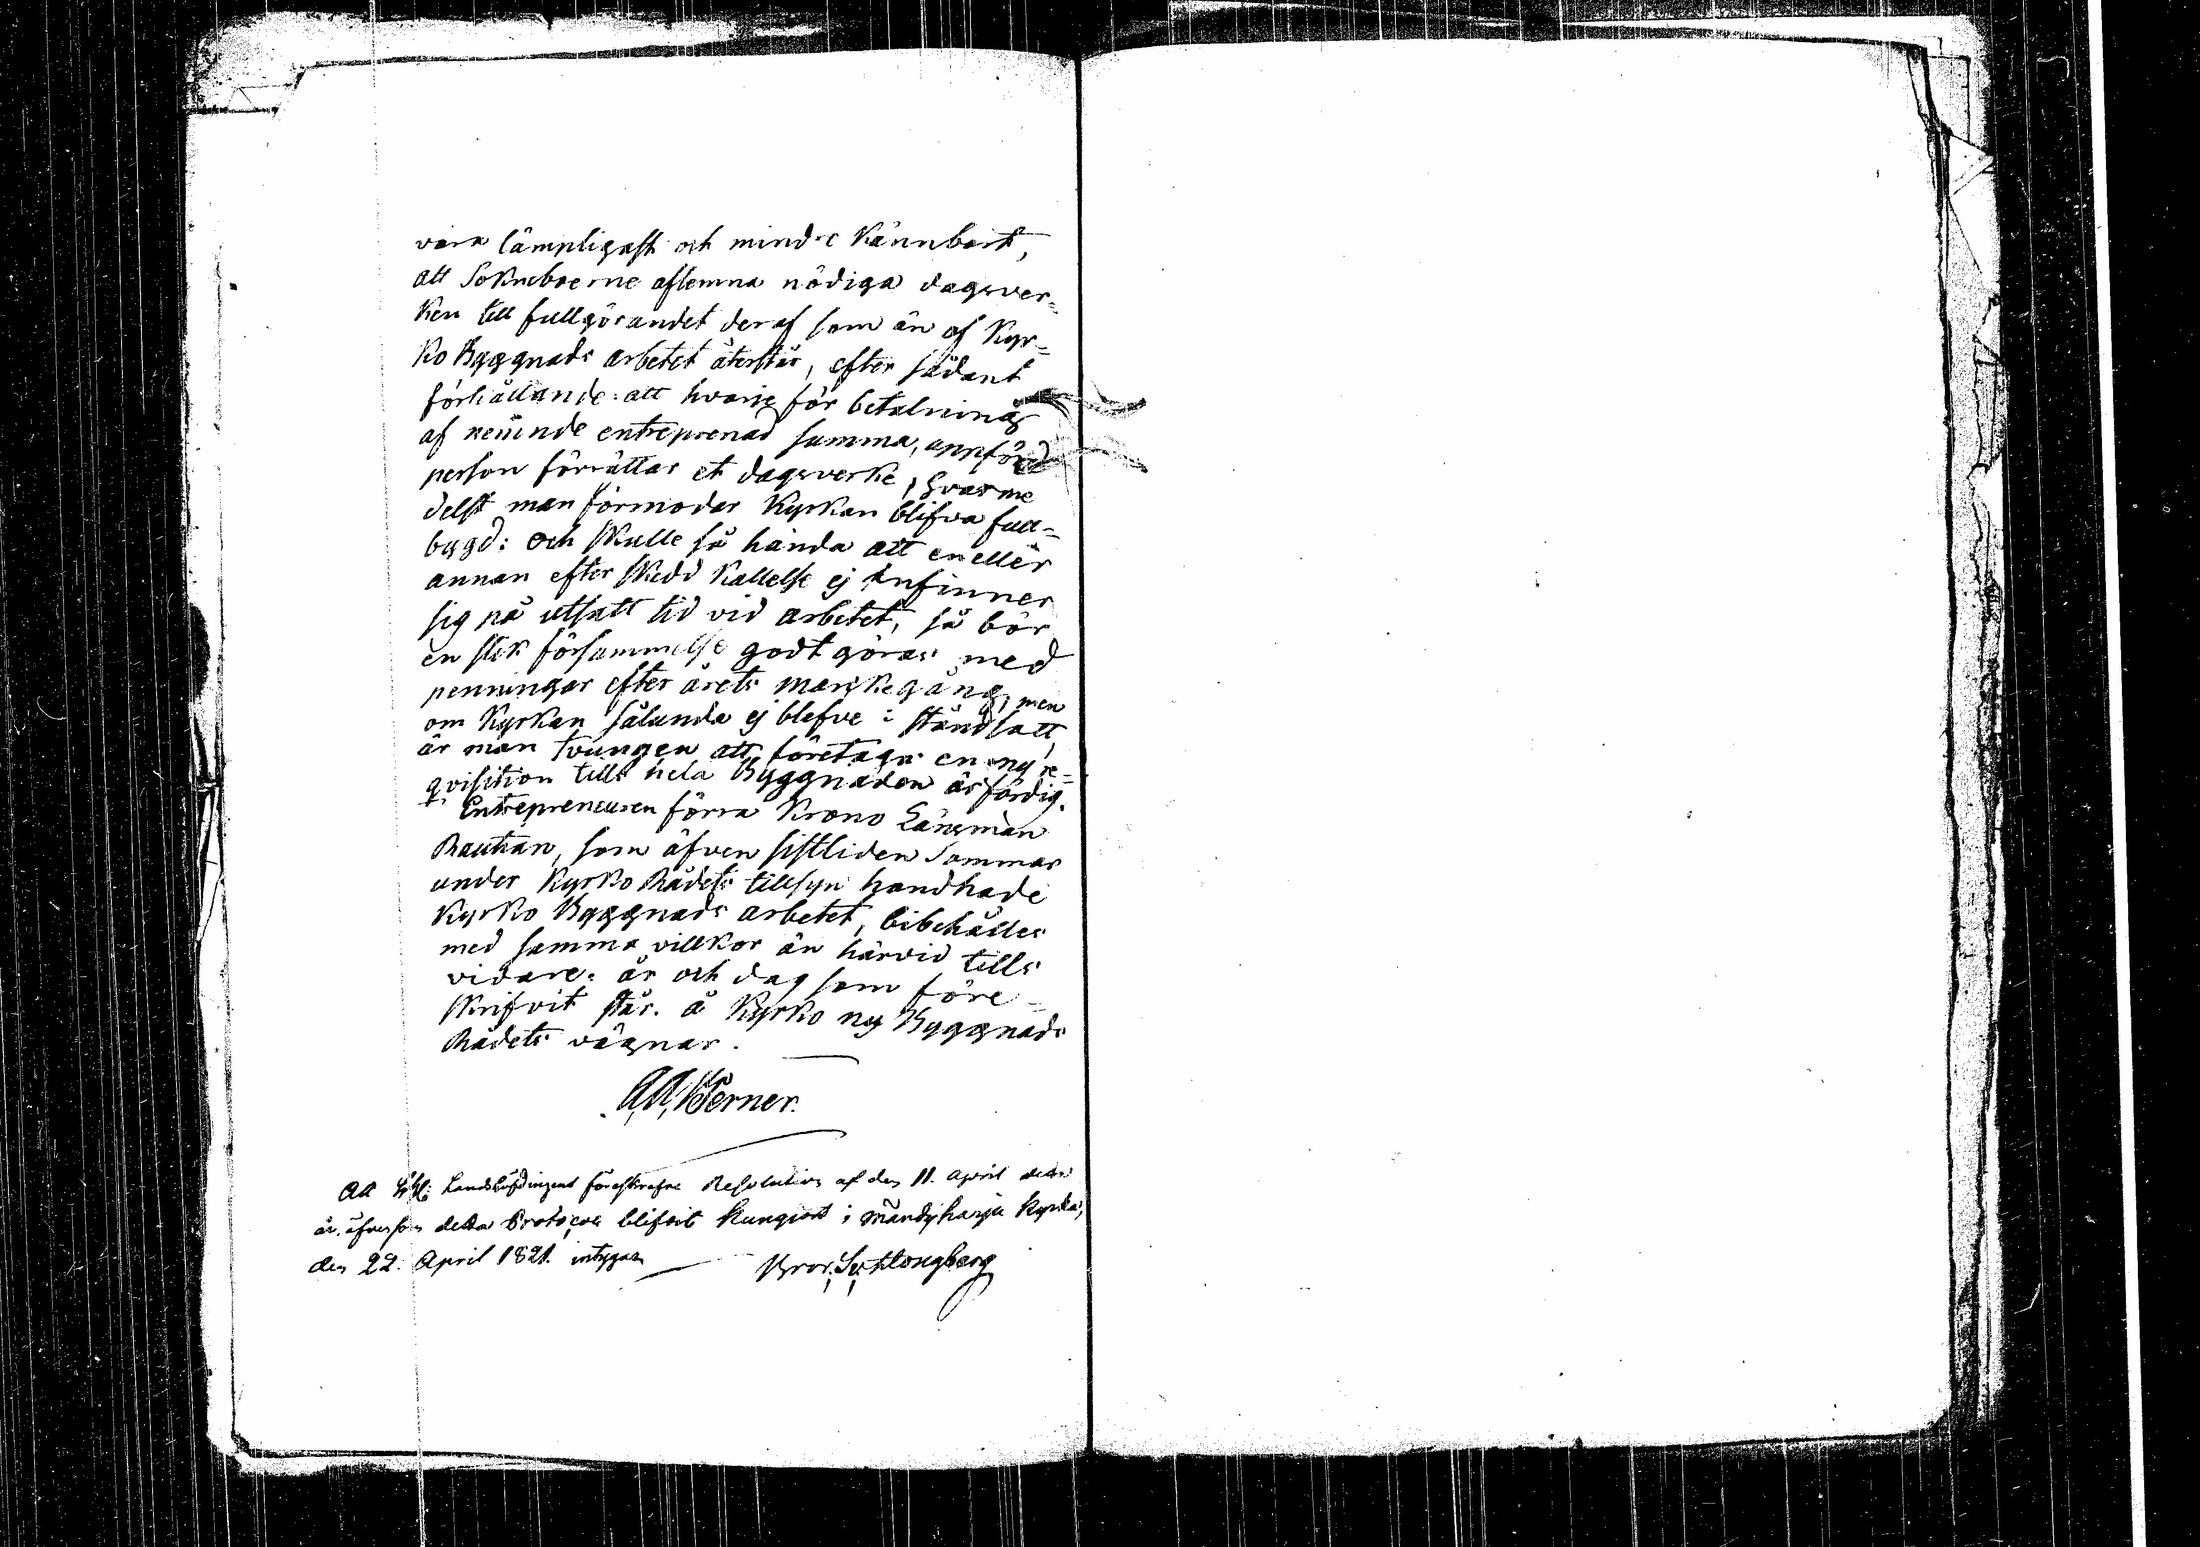 vara lämpligast och mindre kännbart,
att Sokneboerne aflemna nödiga dagsver=
ken till fullgörandet deraf som än af Kyr=
ko Byggnads arbetet återstår, efter sådant
förhållande: att hvarje för betalning
af neuinde entreprenad summa, uppförd
person förrättar et dagsverke, hvarme
delst man förmodar Kyrkan blifva full=
bygd: och skulle så hända att en eller
annan efter skedd kallelse ej infinner
sig på utsatt tid vid arbetet, så bör
en slik försummelse godtgöras med
penningar efter årets markegång, men
om Kyrkan sålunda ej blefve i ståndsatt,
är man tvungen att företaga en ny re=
qvisition tills hela Byggnaden är färdig.
Entrepreneuren förra Krono Länsman
Bauthan, som äfven sistliden Sommar
under Kyrko Rådets tillsyn handhade
Kyrko Byggnads arbetet, bibehålles
med samma villkor än härvid tills
vidare: år och dag som före=
skrifvit står. å Kyrko ny Byggnads
Rådets vägnar.
A.A. Werner.
Att Landshöfdingens föreskrefne Resolution af den 11. april detta
år. äfvensom detta Protocoll blifvit kungiort i Mändyharju Kyrka,
den 22. April 1821. intygar
Bror. Sv. Alongberg